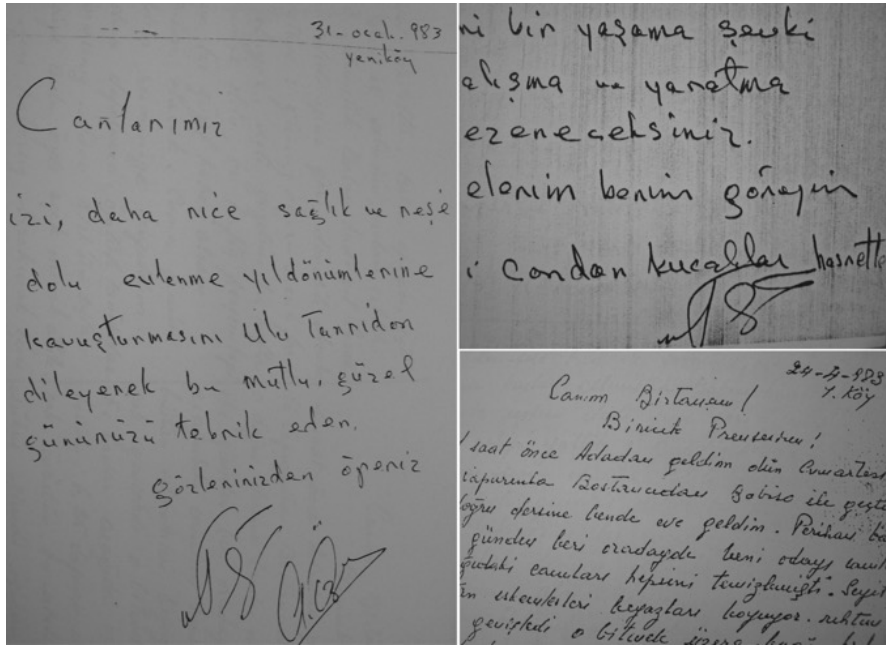 31-ocak.983
yeniköy
Canlarımız
izi, daha nice sağlık ve neşe
dolu evlenme yıldönümlerine
kavuşturmasını Ulu Tanrıdan
dileyerek bu mutlu, güzel
gününüzü tebrik eden.
gözlerinizden öperiz
ni bir yaşama şevki
alışma ve yaratma
ezeneceksiniz.
elerim benim göreyim
i candan kucaklar hasretle
24-4-983
Y. Köy
Canım Birtanem!
Biricik Prensesim!
saat önce Adadan geldim dün Cumartesi
vapurunla Bostancıdan Sobiso ile geçti
doğru dersine bende eve geldim. Perihan
günden beri oradaydı beni odayı
camları hepsini temizlemişti.
beyazları boyuyor. rıhtım
o bitmek üzere